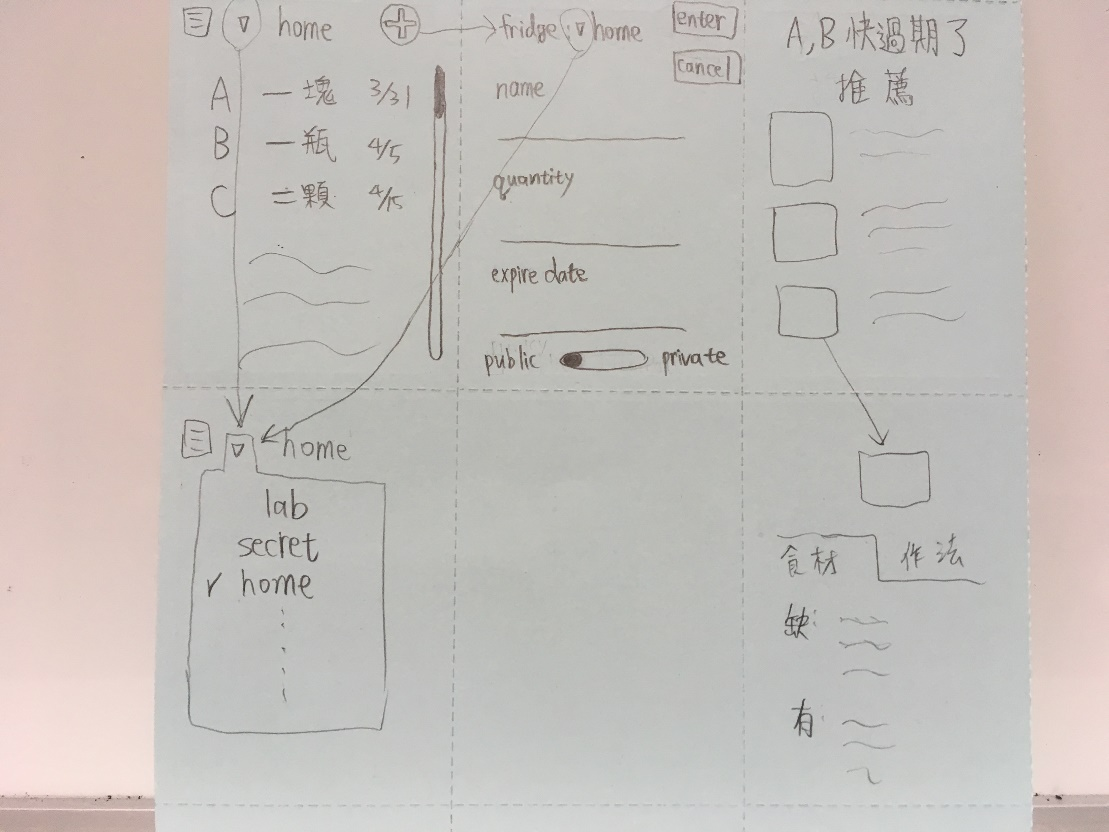 home
A 一塊 3/31
B 一瓶 4/5
C 二顆 4/15
fridge: home
enter
cancel
name
quantity
expire date
public private
A,B 快過期了
推薦
home
lab
secret
home
食材 作法
缺:
有: